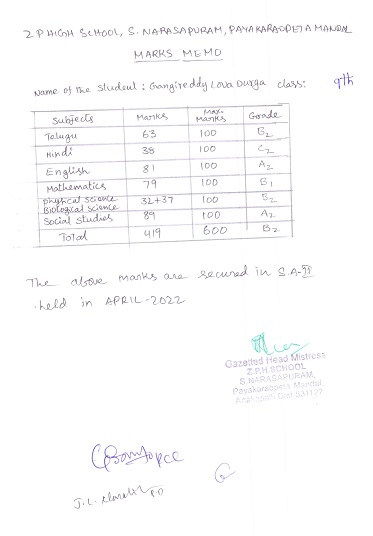 Z P HIGH SCHOOL, S. NARASAPURAM, PAYAKARAOPETA MANDAL
MARKS MEMO
Name of the student : Gangireddy Lova Durga class: 9th
Subjects Marks Max. Marks Grade
Telugu 63 100 B2
Hindi 38 100 C2
English 81 100 A2
Mathematics 79 100 B1
Physical science
Biological science 32+37 100 B2
Social studies 89 100 A2
Total 419 600 B2
The above marks are secured in S.A-II
held in APRIL-2022
Gazetted Head Mistress
Z.P.H.SCHOOL
S.NARASAPURAM,
Payakaraopeta Mandal,
Dist 531127